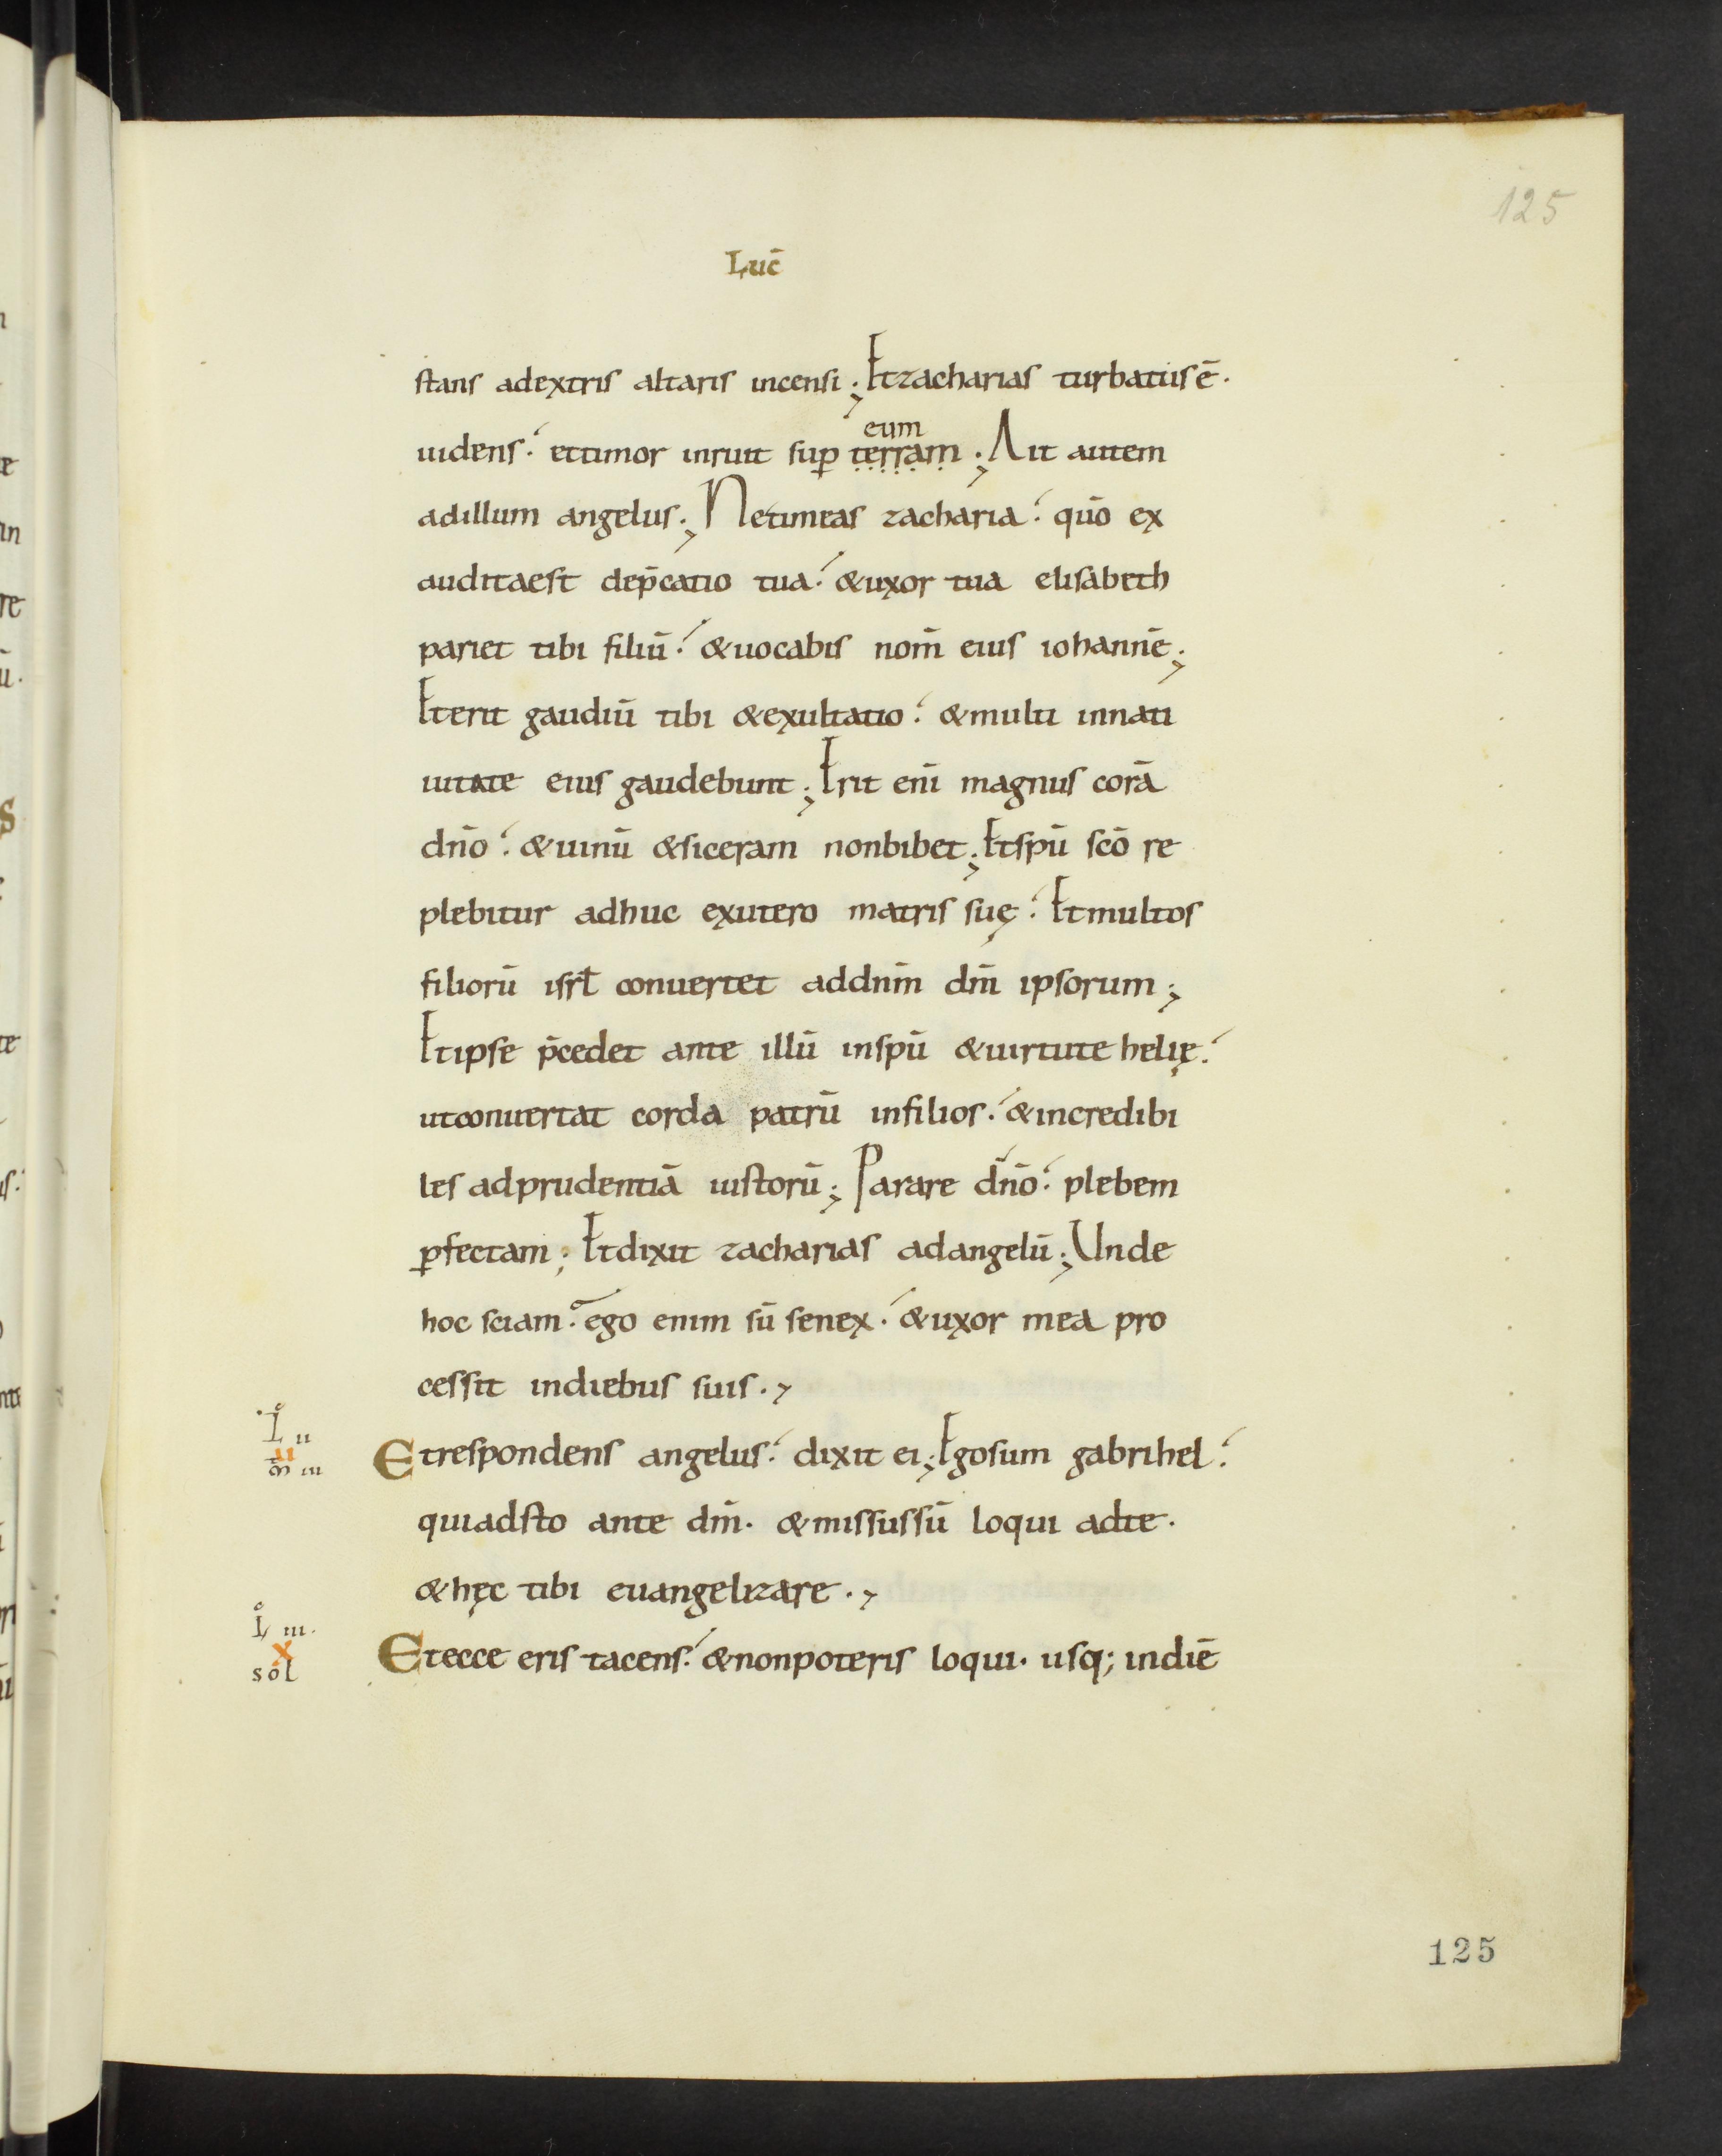 125
Luc̄
stans adextris altaris incensi; Etzacharias turbatus ē.
uidens. ettimor inruit sup̄ terram; Ait autem
eum
adillum angelus; Netimeas zacharia. qūo ex
auditaest dep̄catio tua. &uxor tua elisabeth
pariet tibi filiū. &uocabis nom̄ eius iohannē;
Eterit gaudiū tibi &exultatio. &multi innati
uitate eius gaudebunt; Erit eni̅ magnus corā
dn̄o. &uinū &siceram nonbibet; Etspū scō re
plebitur adhuc exutero matris suę. Etmultos
filiorū isrl̄ conuertet addnm̄ dm̄ ipsorum;
Etipse p̄cedet ante illū inspū &uirtute helię.
utconuertat corda patrū infilios. &incredibi
les adprudentiā iustorū; Parare dn̄o. plebem
ꝑfectam; Etdixit zacharias adangelū; Unde
hoc sciam. ego enim sū senex. &uxor mea pro
cessit indiebus suis.
L ii
ii
m̄ iii
Etrespondens angelus. dixit ei; Egosum gabrihel.
quiadsto ante dm̄. &missussū loqui adte.
&hęc tibi euangelizare.
L iii.
x
sol
Etecce eris tacens. &nonpoteris loqui. usq; indiē
125